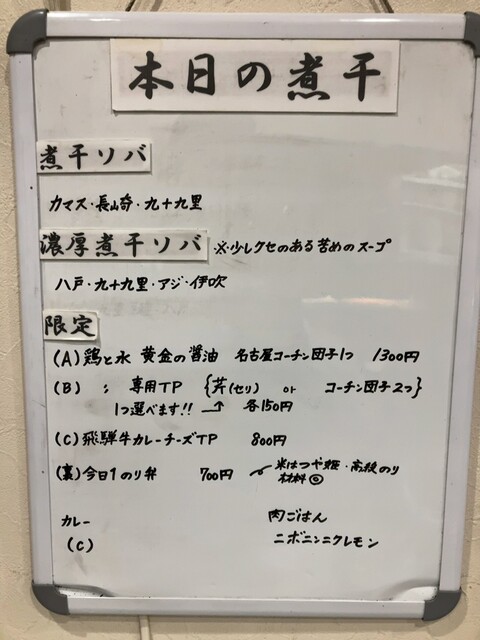 本日の煮干
煮干ソバ
カマス・長崎・九十九里
濃厚煮干ソバ ※少しクセのある苦めのスープ
八戸・九十九里・アジ・伊吹
限定
(A) 鶏と水 黄金の醤油 名古屋コーチン団子1つ 1300円
(B) : 専用TP {芹(セリ) or コーチン団子2つ}
1つ選べます!! 各150円
(C) 飛騨牛カレーチーズTP 800円
(裏) 今日1のり弁 700円 米はつや姫・高級のり
材料◎
カレー 肉ごはん
(C) ニボニンニクレモン